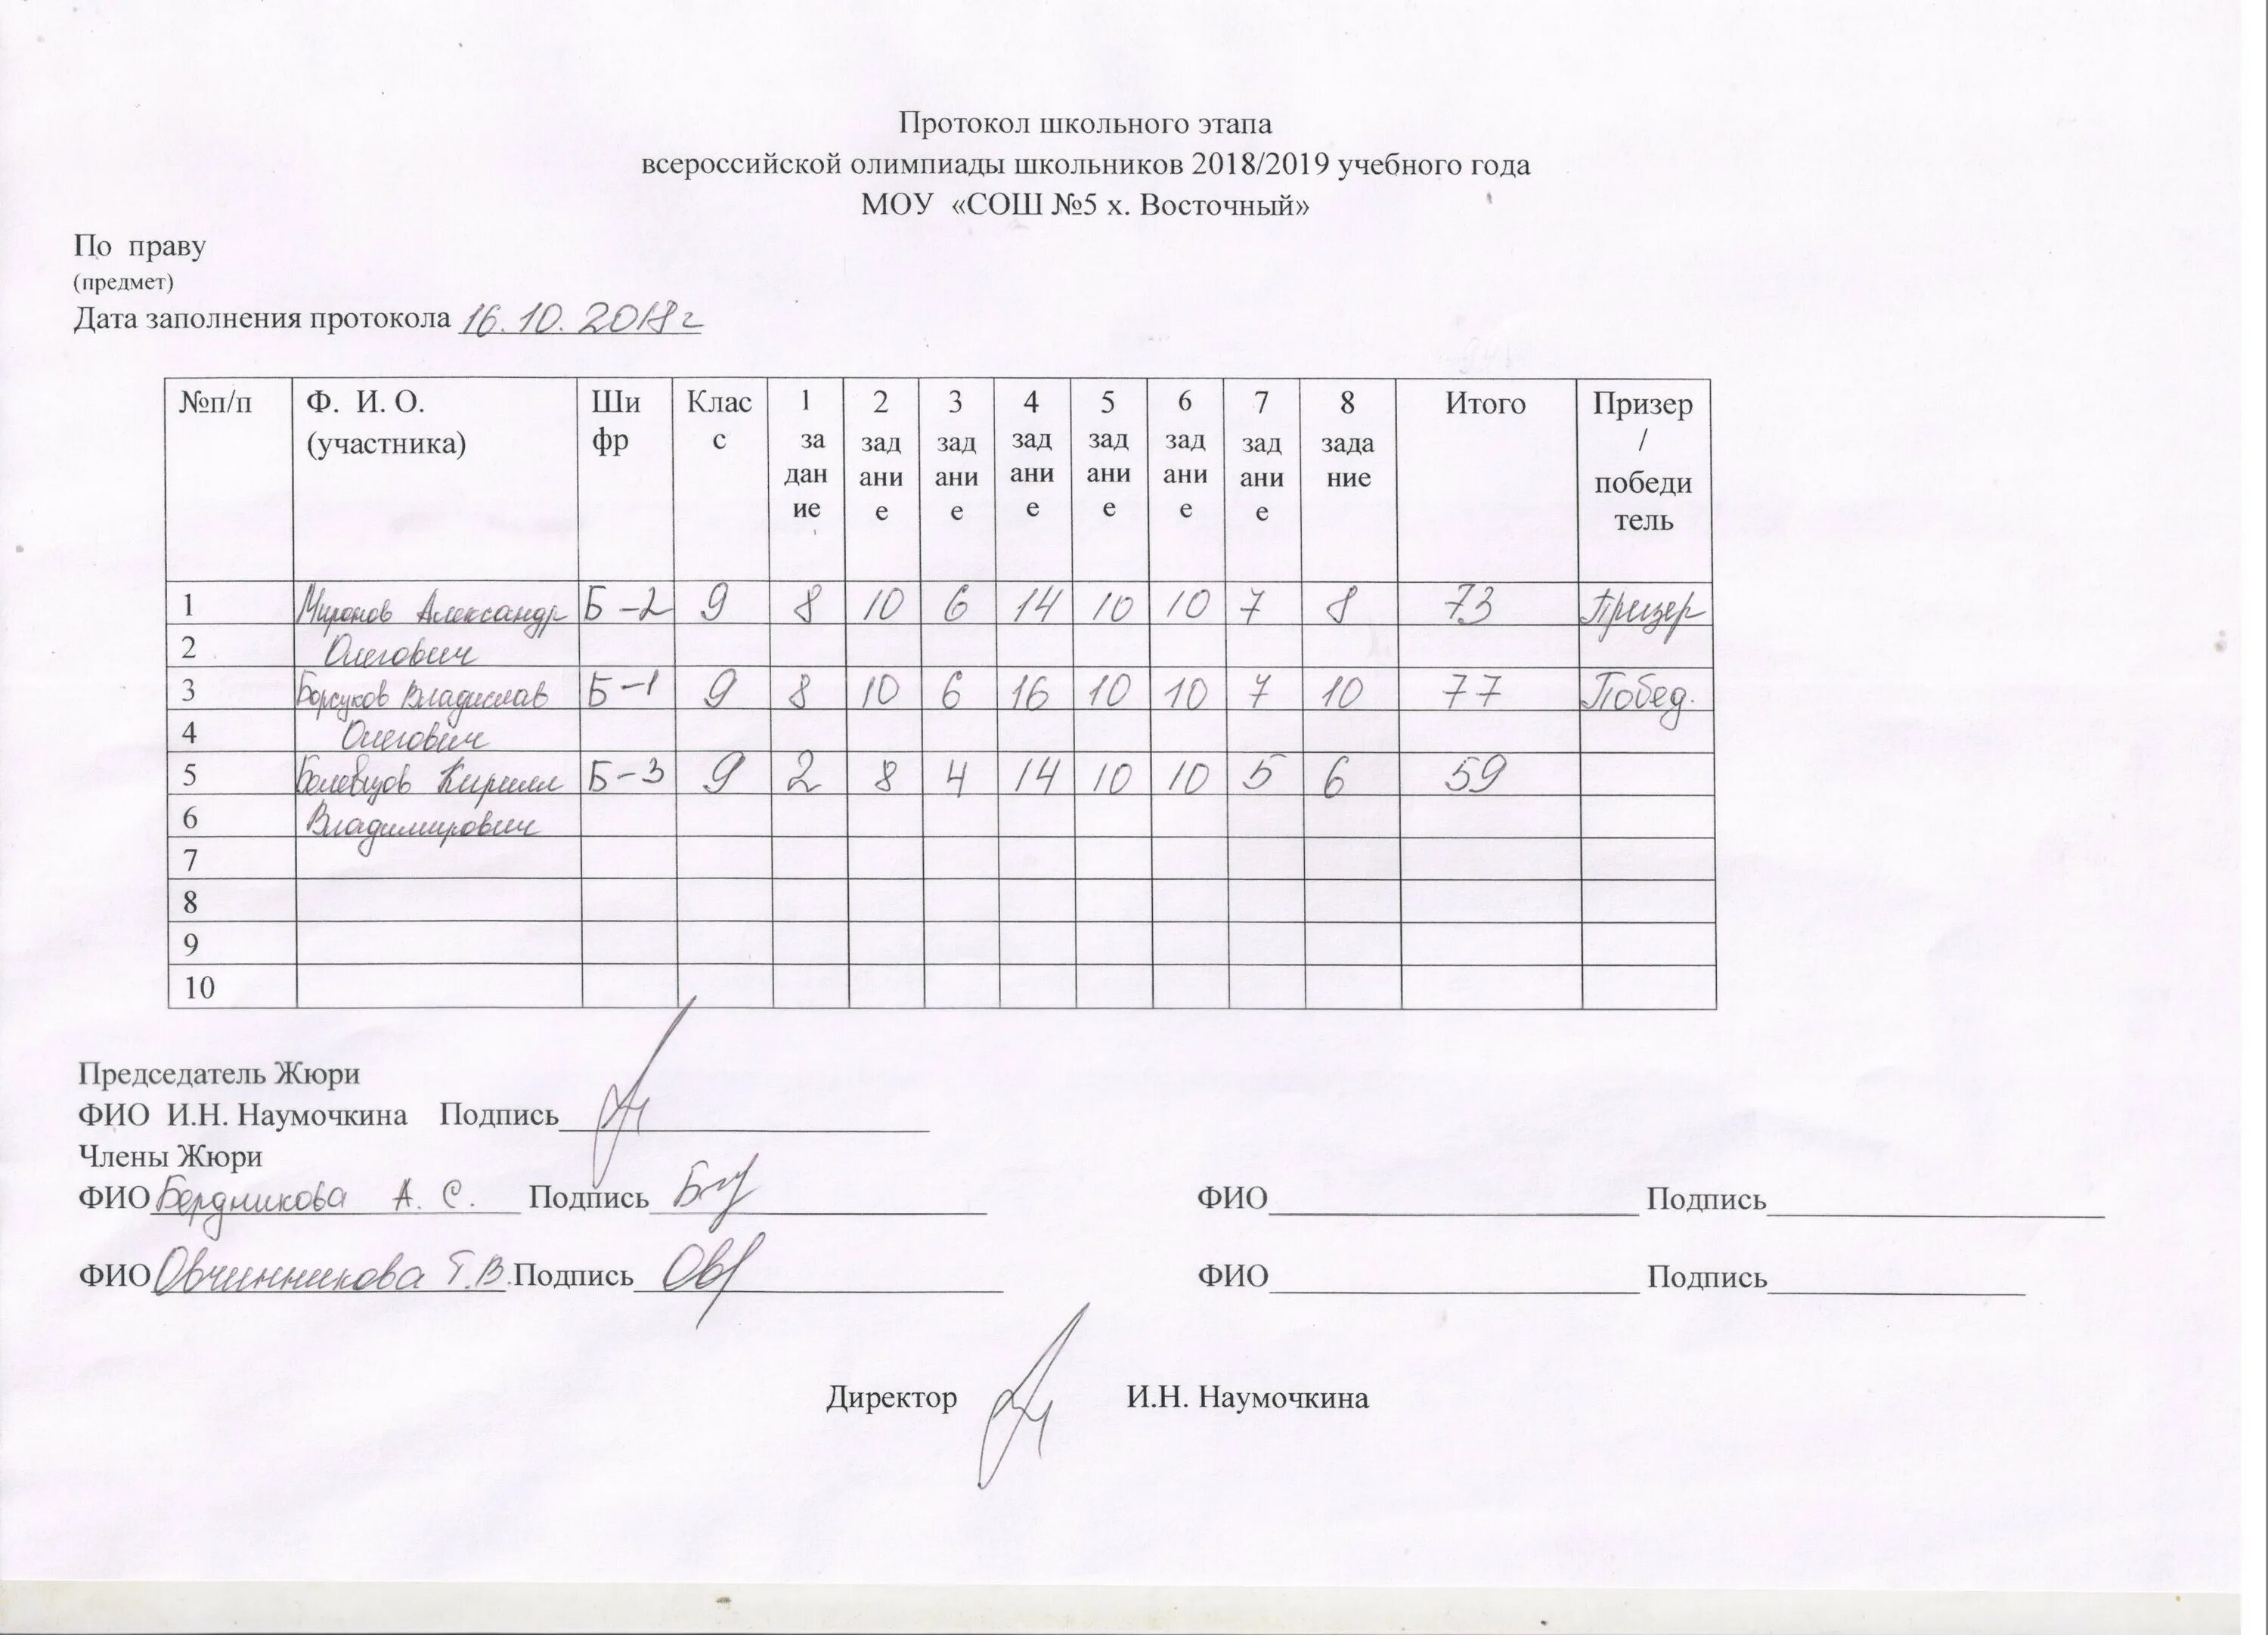 Протокол школьного этапа
всероссийской олимпиады школьников 2018/2019 учебного года
МОУ «СОШ №5 х. Восточный»
По праву
(предмет)
Дата заполнения протокола 16.10.2018г
№п/п Ф. И. О. (участника) Ши фр Клас с 1 за дан ие 2 зад ани е 3 зад ани е 4 зад ани е 5 зад ани е 6 зад ани е 7 зад ани е 8 зада ние Итого Призер / победи тель
1 Миронов Александр Б-2 9 8 10 6 14 10 10 7 8 73 Призер
2 Олегович
3 Борсуков Владислав Б-1 9 8 10 6 16 10 10 7 10 77 Побед.
4 Олегович
5 Болевцов Кирилл Б-3 9 2 8 4 14 10 10 5 6 59
6 Владимирович
7
8
9
10
Председатель Жюри
ФИО И.Н. Наумочкина Подпись
Члены Жюри
ФИО Бердникова А. С. Подпись ФИО Подпись
ФИО Овчинникова Т.В. Подпись ФИО Подпись
Директор И.Н. Наумочкина